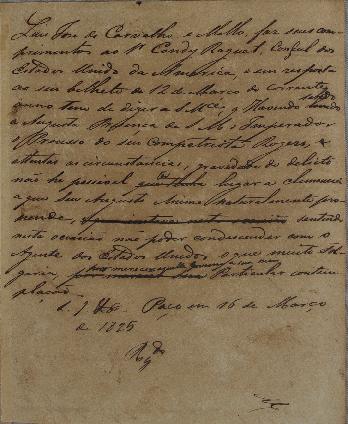 Luiz Jose de Carvalho e Mello, faz seus com-
primentos ao Sr Condy Raguet, Consul dos
Estados Unidos da America, e em resposta
ao seu bilhete de 12 de Março do corrente
anno tem de dizer a S. Mce q havendo subido
a Augusta Presença de S. M. o Imperador
o Processo do seu Compatriota Rogers, &
attentas as circunstancias, gravidade do delicto
não he possivel que tenha lugar a clemencia
a que Seu Augusto Animo naturalmente
sentindo
nesta occasião não poder condescender com o
Agente dos Estados Unidos, o que muito fol-
garia Particular contem-
plação.
Paço em 16 de Março
de 1825